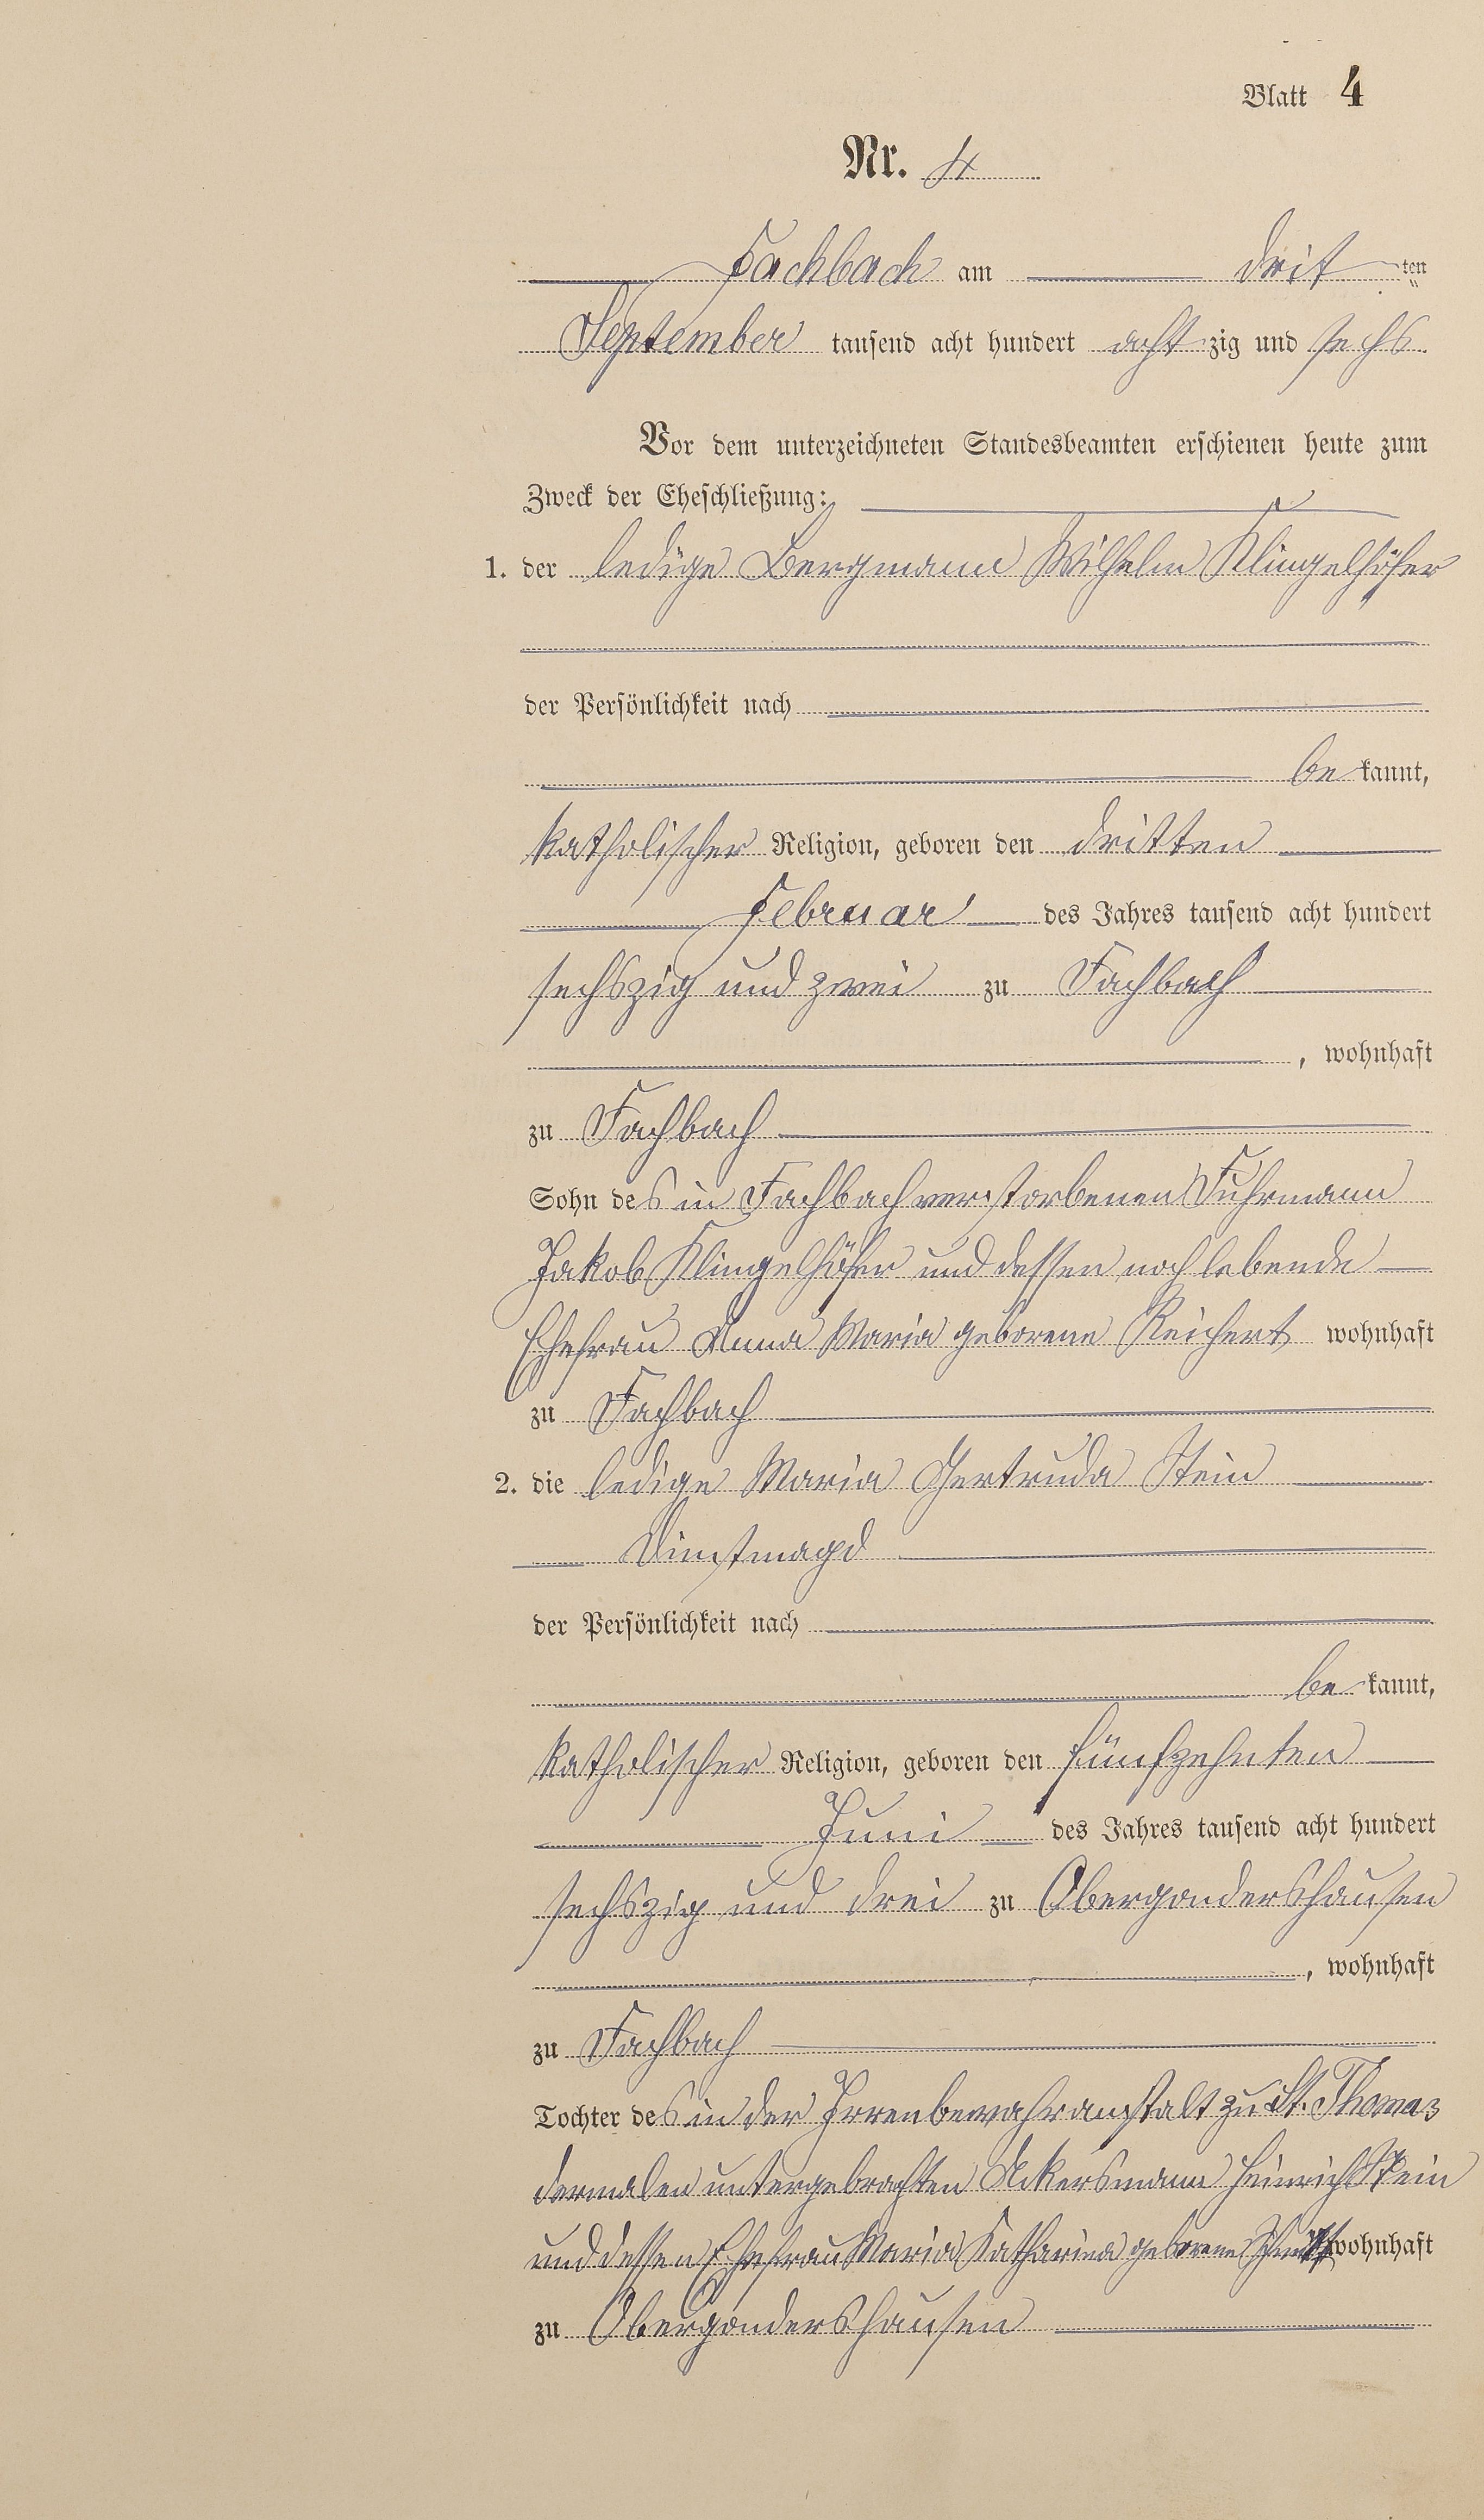 Blatt 4
Nr. 4
Fachbach am drit ten
September tausend acht hundert acht zig und sechs
Vor dem unterzeichneten Standesbeamten erschienen heute zum
Zweck der Eheschließung:
1. der ledige Bergmann Wilhelm Klingelhöfer
der Persönlichkeit nach
be kannt,
katholischer Religion, geboren den dritten
Februar des Jahres tausend acht hundert
sechszig und zwei zu Fachbach
, wohnhaft
zu Fachbach
Sohn des in Fachbach verstorbenen Fuhrmann
Jakob Klingelhöfer und dessen noch lebende
Ehefrau Anna Maria geborene Reichert wohnhaft
zu Fachbach
2. die ledige Maria Gertruda Stein
Dienstmagd
der Persönlichkeit nach
be kannt,
katholischer Religion, geboren den fünfzehnten
Juni des Jahres tausend acht hundert
sechszig und drei zu Obergondershausen
, wohnhaft
zu Fachbach
Tochter des in der Irrenbewahranstalt zu St. Thomas
dermalen untergebrachten Ackersmann Heinrich Stein
und dessen Ehefrau Maria Katharina geborene wohnhaft
zu Obergondershausen